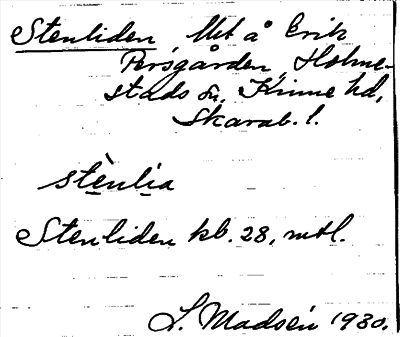 Stenliden, Utt å Erik
Persgården, Holme-
stads sn, Kinne hd,
Skarab. l.
stènlia
Stenliden kb. 28, mtl.
L. Madsén 1930.